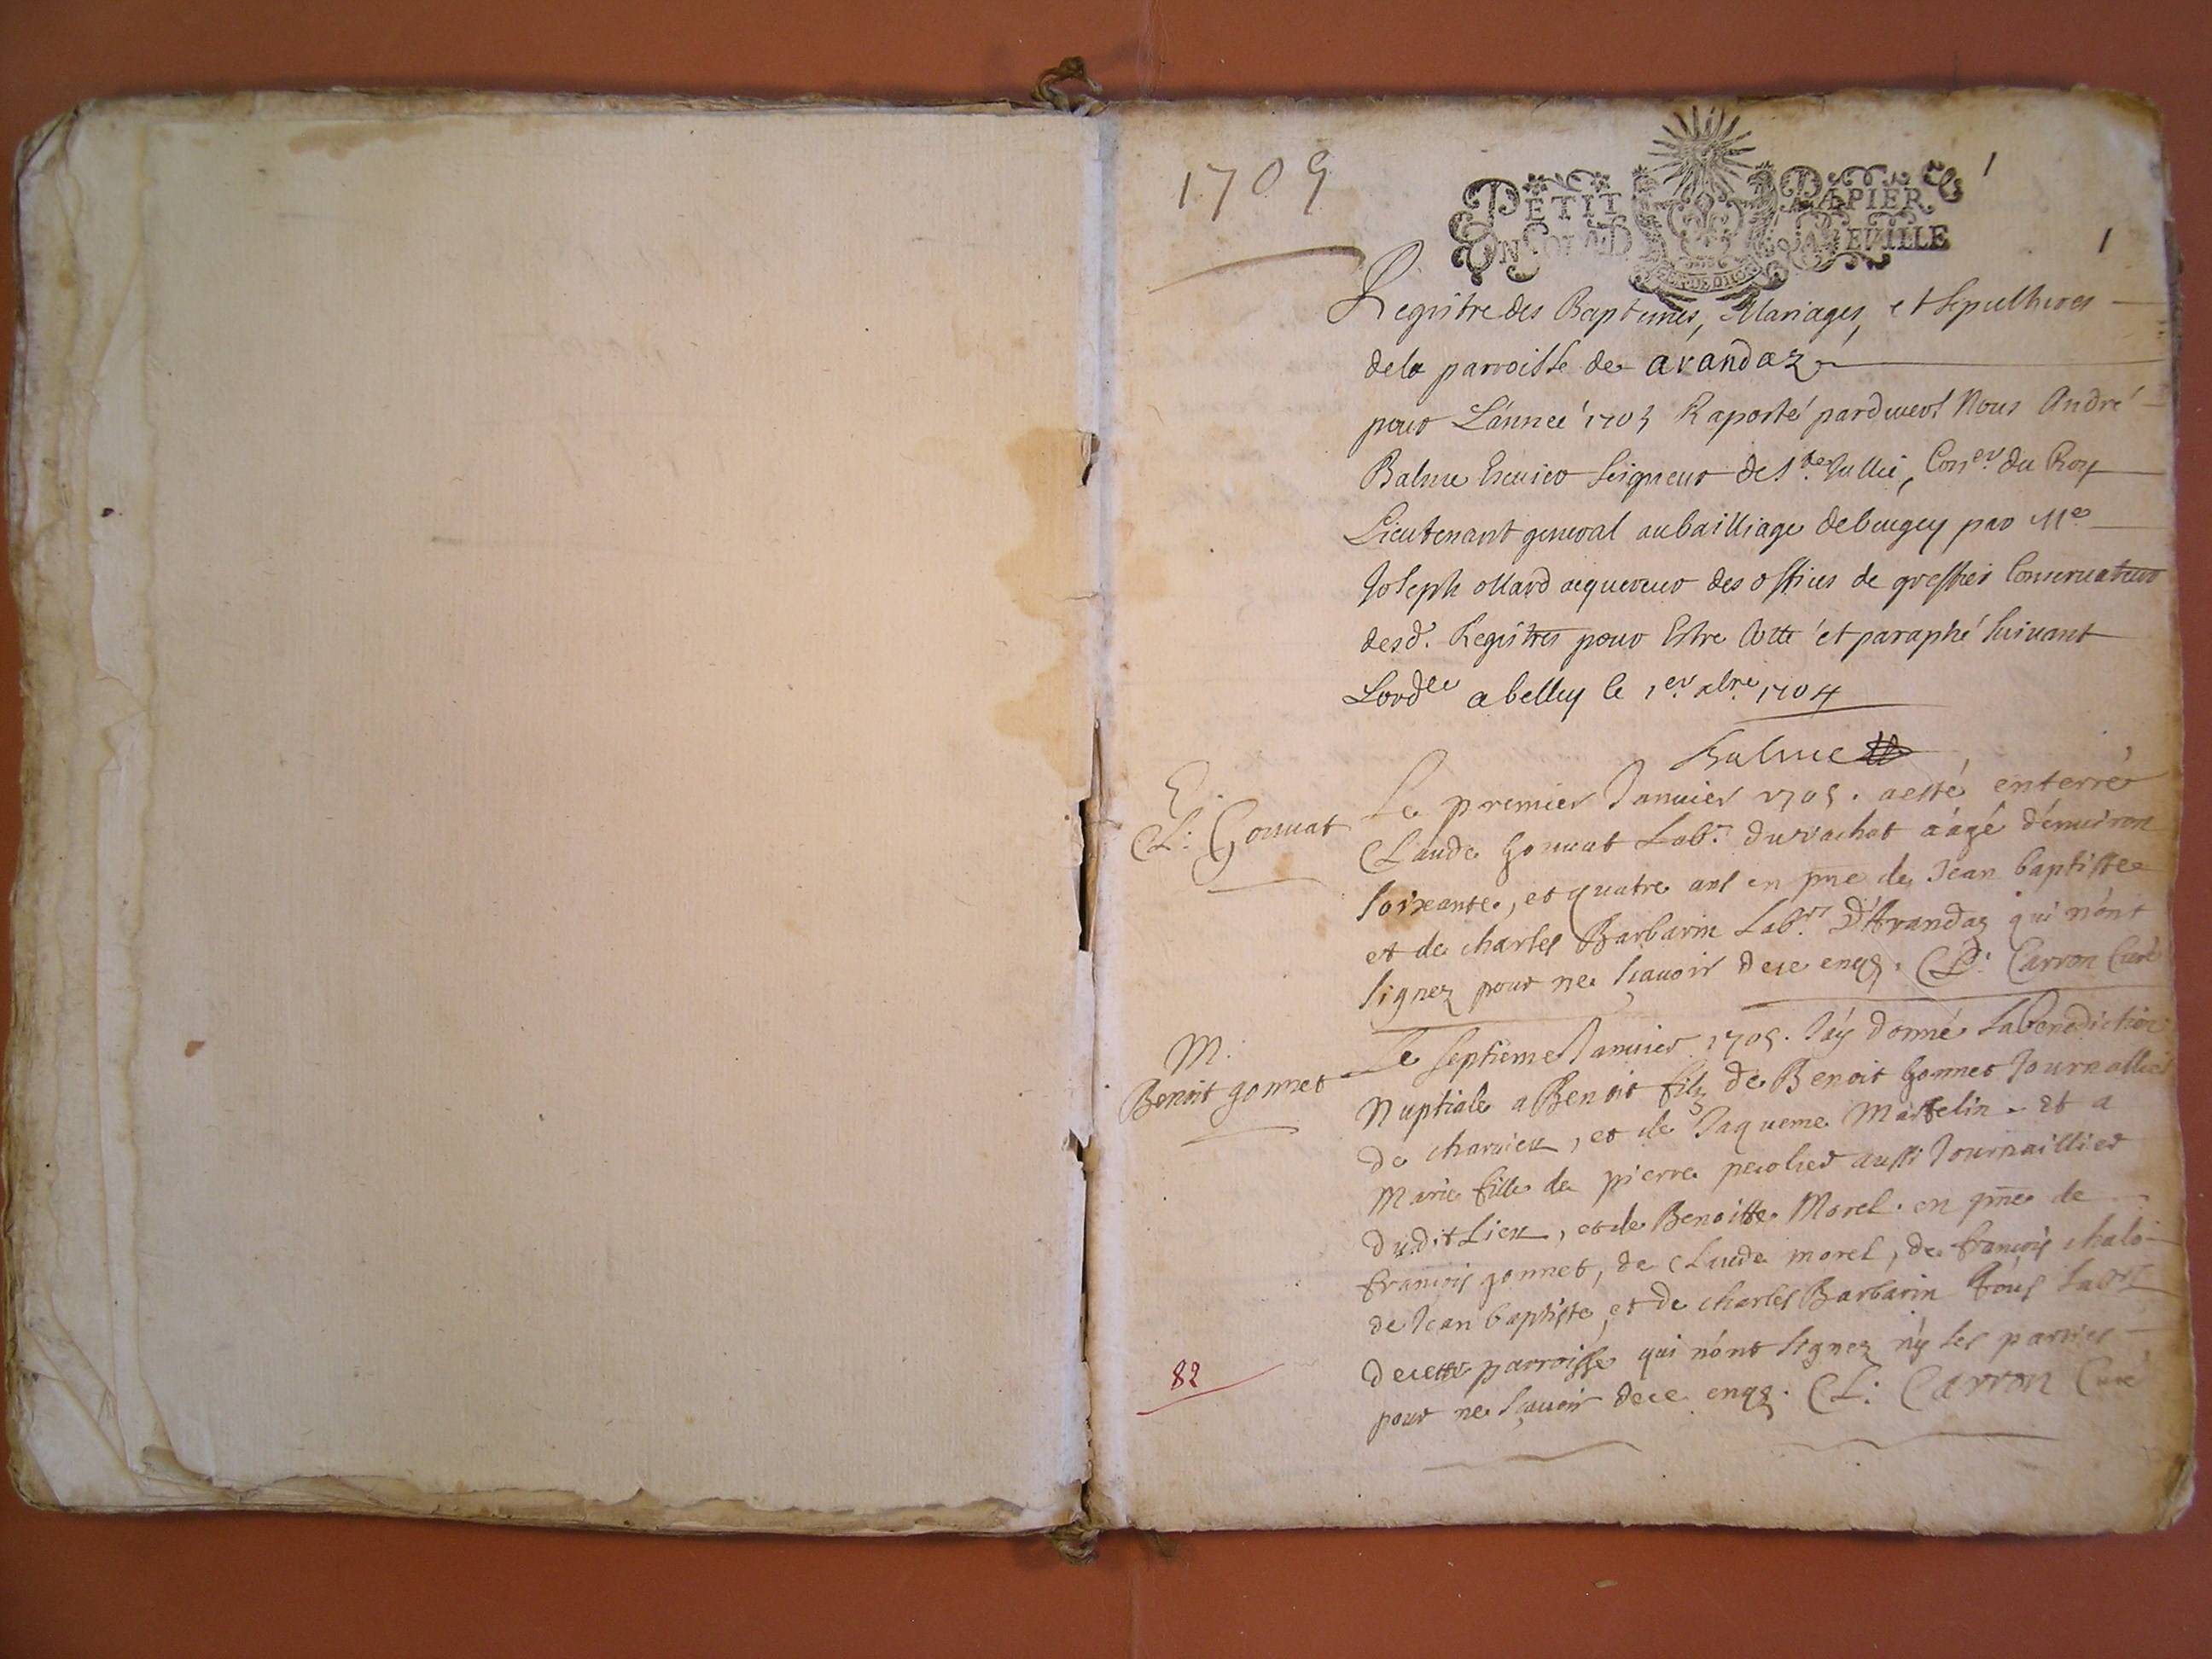 1705
1
PETIT PAPIER
1
Registre des Baptemes, Mariages, et sepultures
dela parroisse de avandaz
pour L'année 1705 Raporté pardevant Nous André
Balme Escuier seigneur de Ste Jullie, Coner. du Roy
Lieutenant general au bailliage debugey par Me
Joseph ollard acquereur des offices de greffier Conservateur
desd. Registres pour Estre Cotté et paraphé suivant
Lordce a belley le 1er. xbre. 1704
Balme
E.
Cl: Gonnat
Le premier Janvier 1705. aesté enterré
Claude Gonnat Labr. du vachat a'agé d'environ
soixante, et quatre ans en pnce de Jean baptiste
et de charles Barbarin Labrs. D'Arandaz qui n'ont
signez pour ne sçavoir dece enqs. Cl: Carron Curé
M.
Benoit gonnet
Le septieme Janvier 1705. J'ay donné La Benediction
Nuptiale a Benoit filz de Benoit Gonnet Journallier
de charvieu, et de Jaqueme Martelin. Et a
Marie fille de pierre aussi Journaillier
dudit Lieu, et de Benoitte Morel. en pnce de
francois gonnet, de Claude morel, de francois
de Jean baptiste, et de charles Barbarin tous Labrs
decette parroisse qui n'ont signez n'y les parties
pour ne sçavoir dece enqs. Cl: Carron Curé
82